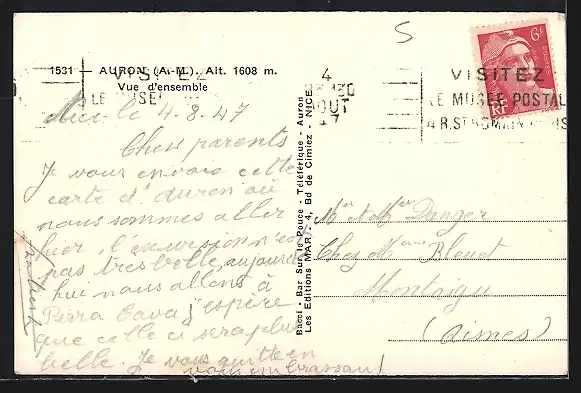 1531 — AURON (A.-M.). Alt. 1608 m.
Vue d'ensemble
VISITEZ
LE MUSÉE
Nice le 4.8.47
Chers parents
Je vous envoie cette
carte d'Auron où
nous sommes aller
hier, l'excursion n'est
pas très belle, aujourd
hui nous allons à
Peira Cava j'espère
que celle ci sera plus
belle. Je vous quitte en
vous embrassant!
Bacci - Bar Sur le Pouce - Téléférique - Auron
Les Editions MAR, 4, Bd de Cimiez - NICE
S
4
AOUT
47
VISITEZ
LE MUSÉE POSTAL
4 R. ST ROMAIN PARIS
6F
RF
Mr et Mme Danger
Chez Mme Bleuet
Montaigu
(Aisnes)